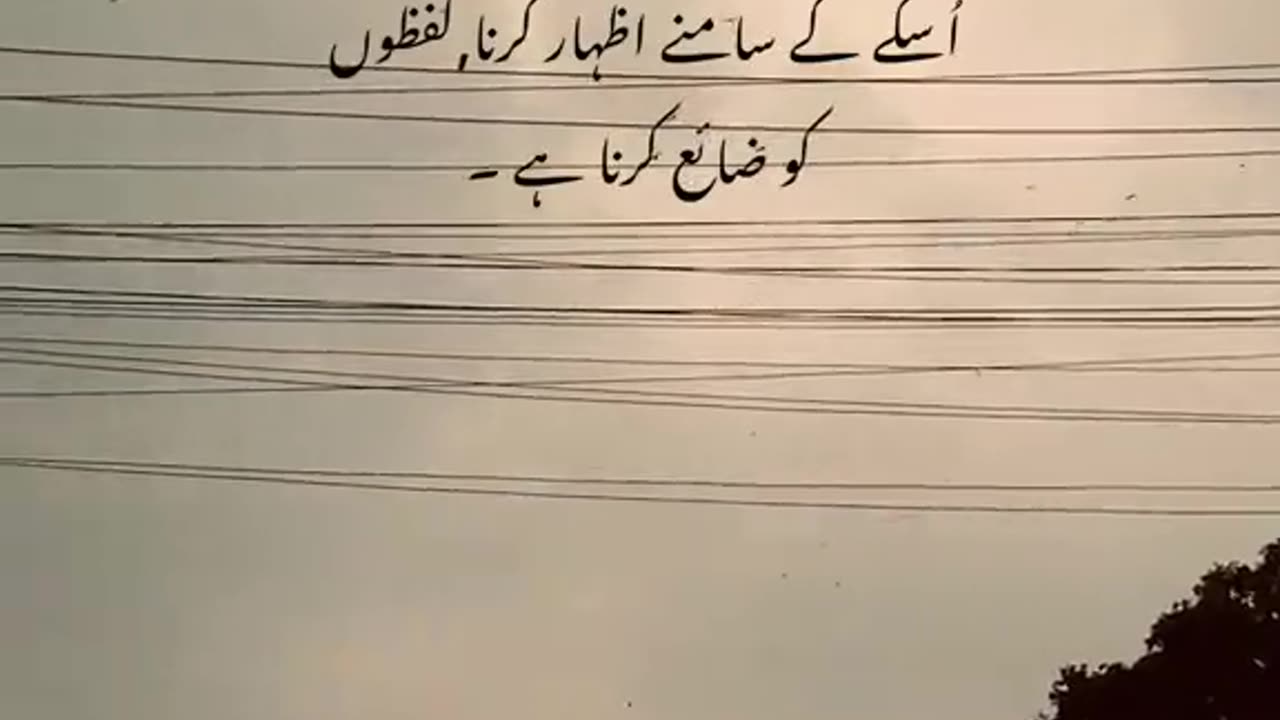 اُسکے کے سامنے اظہار کرنا, لفظوں
کو ضائع کرنا ہے ۔